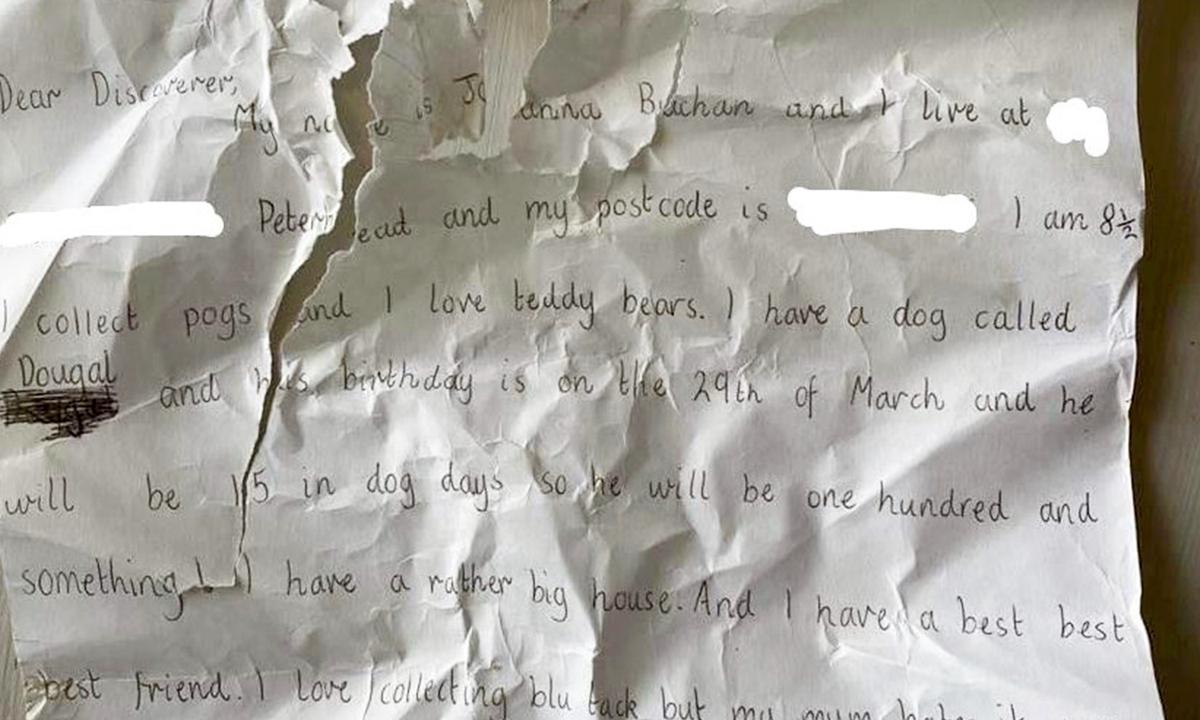 Dear Discoverer,
My na e is Jo anna Buchan and I live at
Peterhead and my postcode is I am 8½
I collect pogs and I love teddy bears. I have a dog called
Dougal and his birthday is on the 29th of March and he
will be 15 in dog days so he will be one hundred and
something! I have a rather big house. And I have a best best
best friend. I love collecting blu tack but my mum hates it